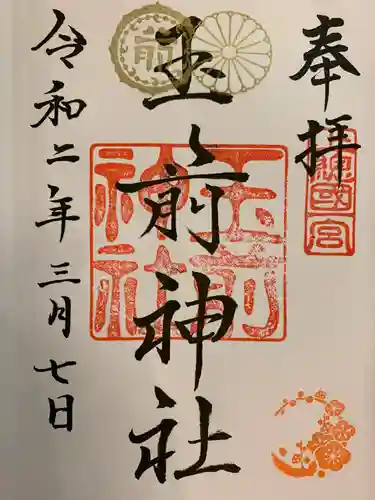 奉拝
総國宮
玉前神社
玉前神社
前
令和二年三月七日